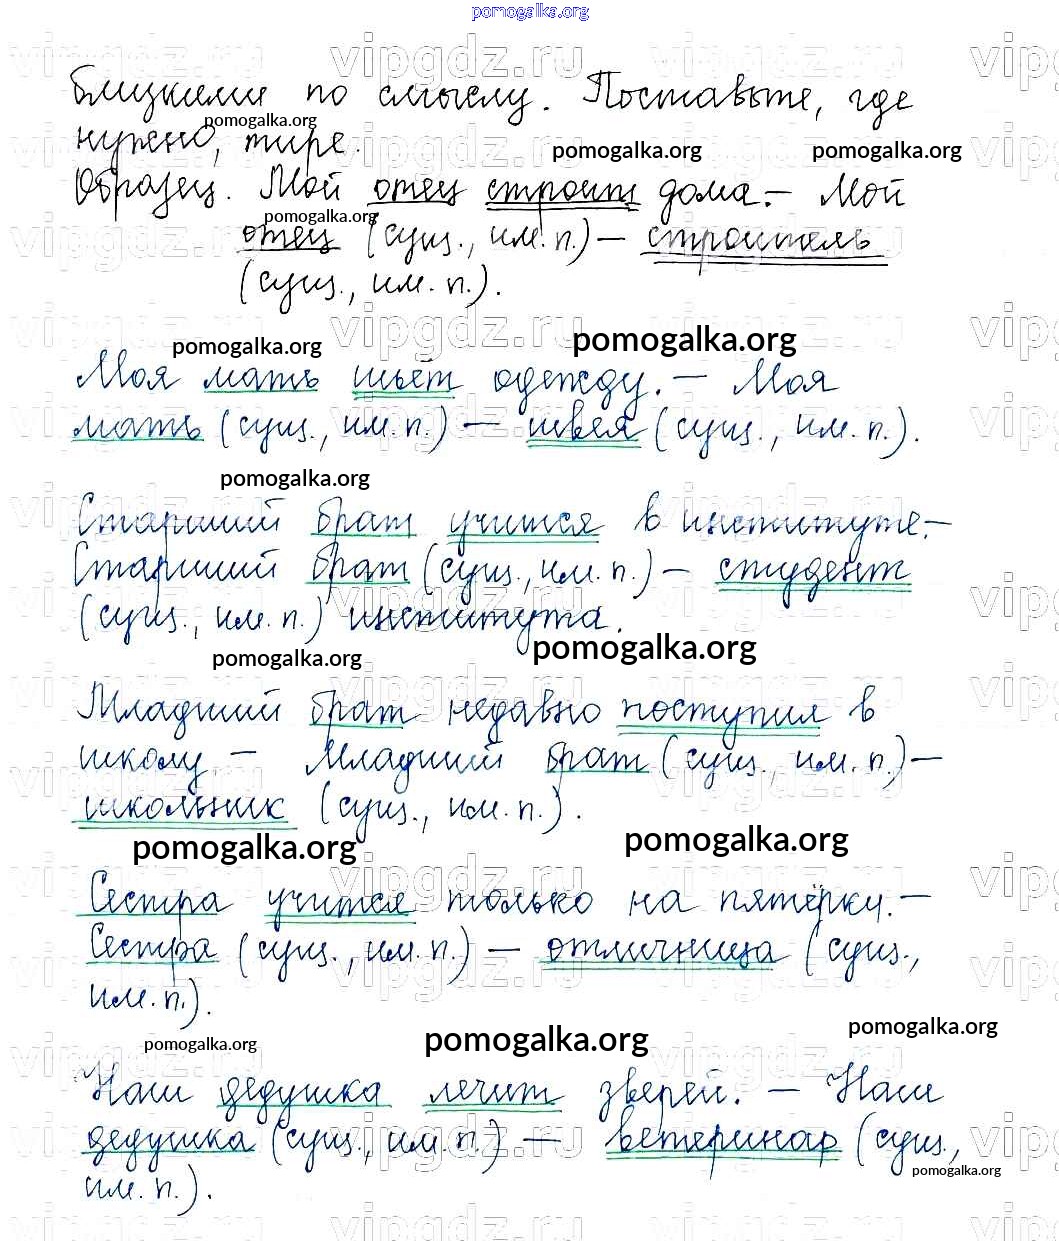 pomogalka.org
близкими по смыслу. Поставьте, где
нужно, тире.
Образец. Мой отец строит дома. – Мой
отец (сущ., им. п.) – строитель
(сущ., им. п.).
Моя мать шьёт одежду. – Моя
мать (сущ., им. п.) – швея (сущ., им. п.).
Старший брат учится в институте. –
Старший брат (сущ., им. п.) – студент
(сущ., им. п.) института.
Младший брат недавно поступил в
школу – Младший брат (сущ., им. п.) –
школьник (сущ., им. п.).
Сестра учится только на пятёрки. –
Сестра (сущ., им. п.) – отличница (сущ.,
им. п.).
Наш дедушка лечит зверей. – Наш
дедушка (сущ., им. п.) – ветеринар (сущ.,
им. п.).